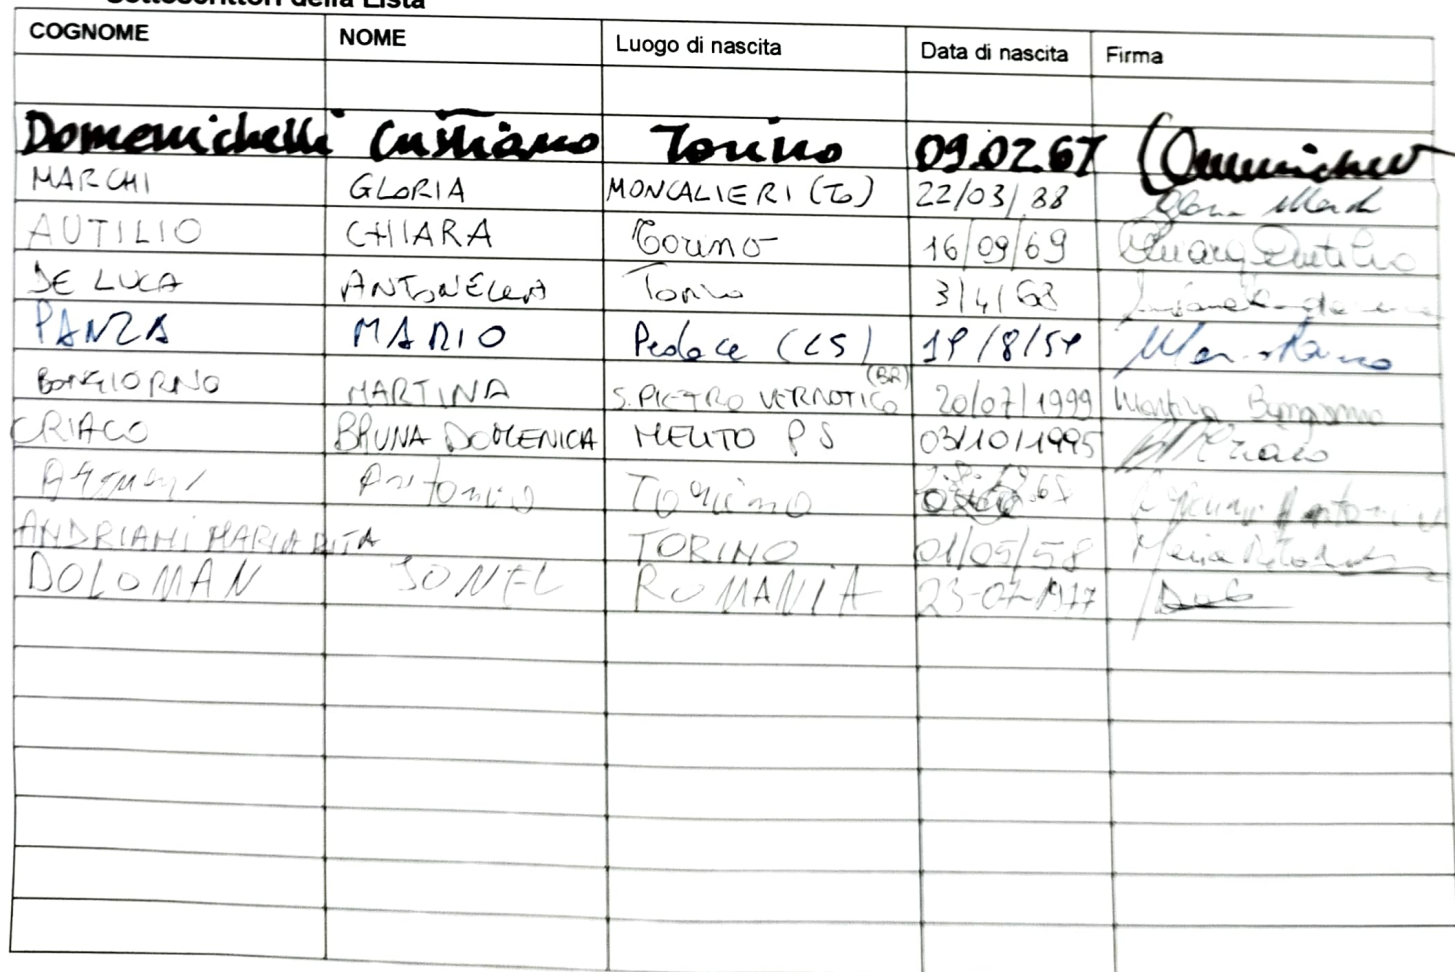 Sottoscrittori della Lista
COGNOME NOME Luogo di nascita Data di nascita Firma
Domenichelli Cristiano Torino 09.02.67 Domenichelli
MARCHI GLORIA MONCALIERI (TO) 22/03/88 Gloria Marchi
AUTILIO CHIARA Torino 16/09/69 Chiara Autilio
DE LUCA ANTONELLA Torino 3/4/68
PANZA MARIO Pedace (CS) Mario Panza
BONGIORNO MARTINA S. PIETRO VERNOTICO (BR) 20/07/1999 Martina Bongiorno
CRIACO BRUNA DOMENICA MELITO PS 03/10/1995 Criaco
Antonio Torino
ANDRIANI MARIA RITA TORINO 01/05/58 Maria Rita
DOLOMAN IONEL ROMANIA 23-07-1977